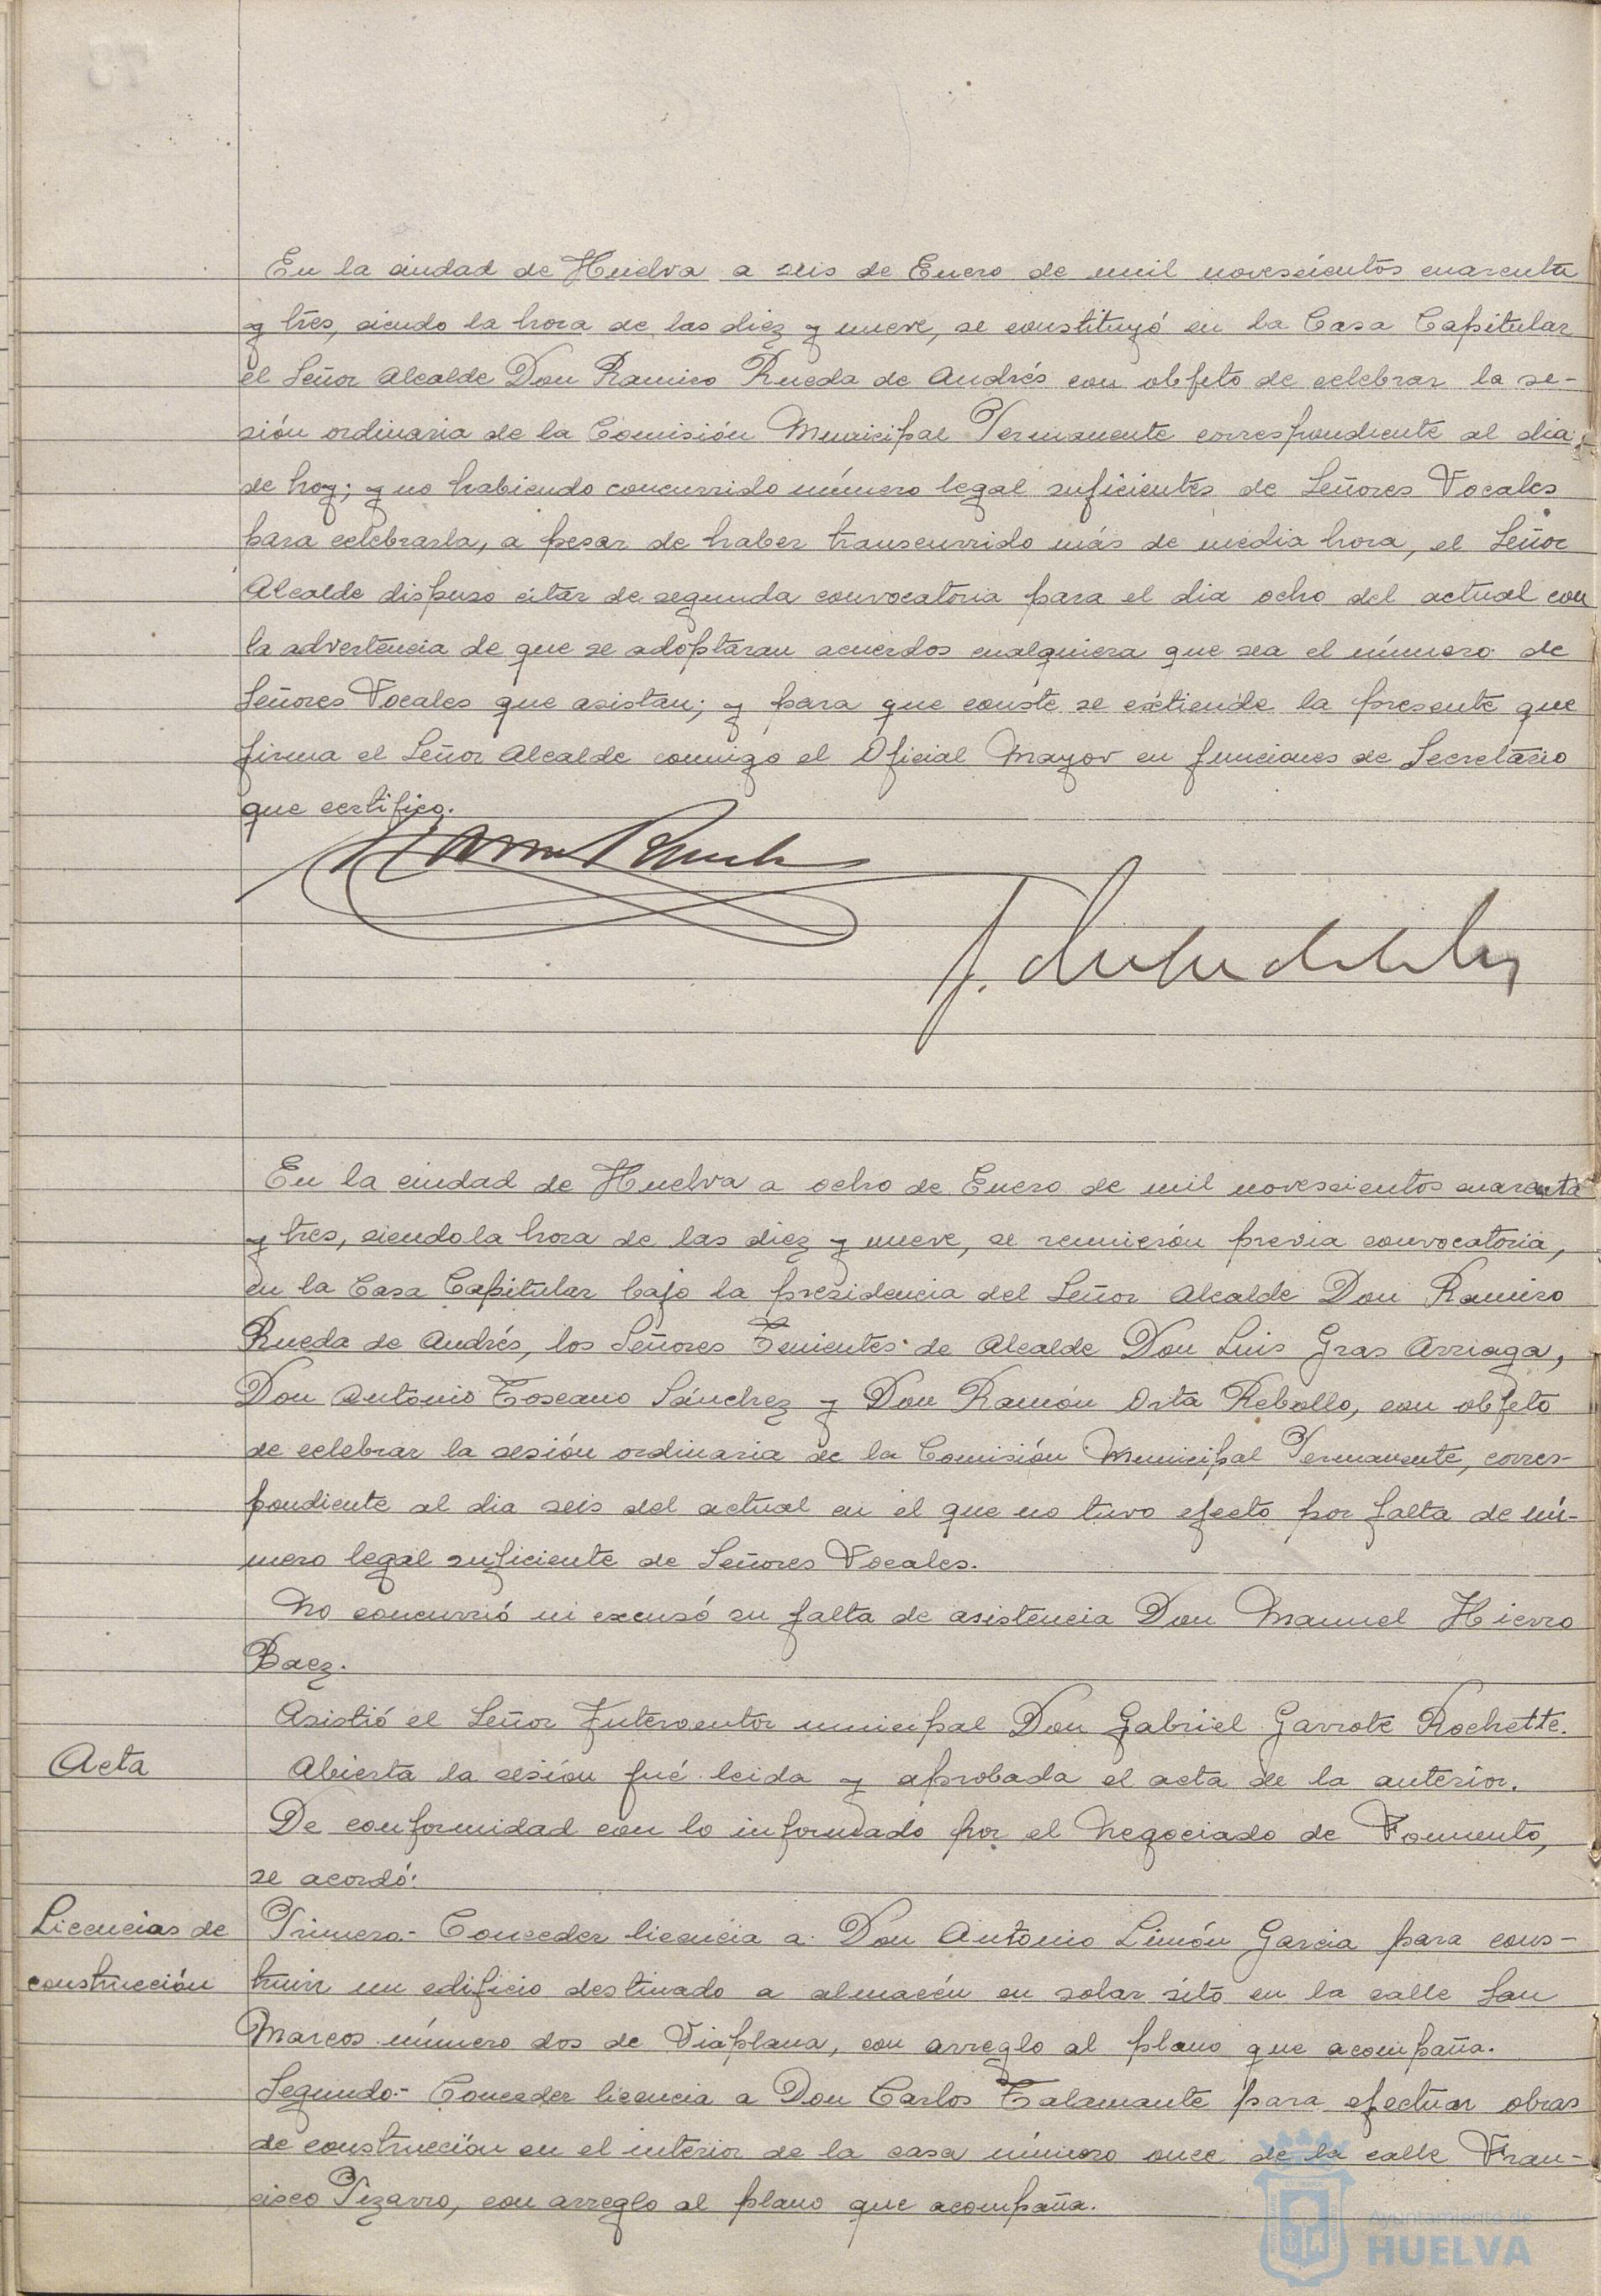 En la ciudad de Huelva a seis de Enero de mil novescientos cuarenta
y tres, siendo la hora de las diez y nueve, se constituyó en la Casa Capitular
el Señor Alcalde Don Ramiro Rueda de Andrés con objeto de celebrar la se-
sión ordinaria de la Comisión Municipal Permanente correspondiente al dia
de hoy; y no habiendo concurrido número legal suficientes de Señores Vocales
para celebrarla, a pesar de haber transcurrido más de media hora, el Señor
Alcalde dispuso citar de segunda convocatoria para el dia ocho del actual con
la advertencia de que se adoptaran acuerdos cualquiera que sea el número de
Señores Vocales que asistan; y para que conste se extiende la presente que
firma el Señor Alcalde conmigo el Oficial Mayor en funciones de Secretario
que certifico.
En la ciudad de Huelva a ocho de Enero de mil novescientos cuarenta
y tres, siendo la hora de las diez y nueve, se reunierón previa convocatoria,
en la Casa Capitular bajo la presidencia del Señor Alcalde Don Ramiro
Rueda de Andrés, los Señores Tenientes de Alcalde Don Luis Gras Arriaga,
Don Antonio Toscano Sánchez y Don Ramón Orta Rebollo, con objeto
de celebrar la sesión ordinaria de la Comisión Municipal Permanente, corres-
pondiente al dia seis del actual en el que no tuvo efecto por falta de nú-
mero legal suficiente de Señores Vocales.
No concurrió ni excusó su falta de asistencia Don Manuel Hierro
Baez.
Asistió el Señor Interventor municipal Don Gabriel Garrote Rochette.
Acta
Abierta la sesión fué leida y aprobada el acta de la anterior.
De conformidad con lo informado por el Negociado de Fomento,
se acordó:
Licencias de
construcción
Primero.- Conceder licencia a Don Antonio Limón Garcia para cons-
truir un edificio destinado a almacén en solar sito en la calle San
Marcos número dos de Viaplana, con arreglo al plano que acompaña.
Segundo.- Conceder licencia a Don Carlos Talamante para efectuar obras
de construcción en el interior de la casa número once de la calle Fran-
cisco Pizarro, con arreglo al plano que acompaña.
Ayuntamiento de
HUELVA